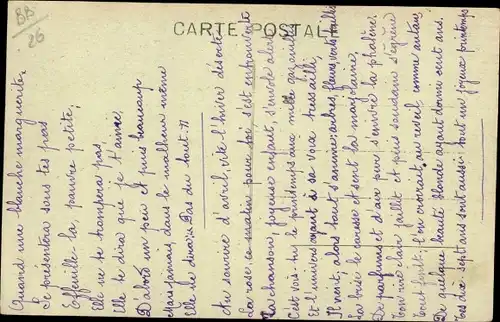 BB
26
CARTE POSTALE
Quand une blanche marguerite
Se présentera sous tes pas
Effeuille-la pauvre petite,
Elle ne te trompera pas,
Elle te dira que je t'aime
D'abord un peu et puis beaucoup
Mais jamais, dans le malheur même
Elle ne dira: "Pas du tout."
Au sourire d'avril, vite l'hiver déserte
La rose, ce matin, pour toi s'est
La chanson, joyeuse enfant, s'envole alors
C'est vois-tu le printemps aux mille
Et l'univers ayant à sa voix tressailli,
Il voit, alors tout s'anime: autres, fleurs, verts
La brise le caresse et sent la marjolaine,
De parfums et d'air pur s'enivre la phalène.
Ton vie clair jaillit et puis soudain s'égrène
Tout finit; l'on croirait, au réveil, comme antan,
De quelque haute blonde ayant dormi cent ans.
Tes dix-sept ans sont aussi tout un joyeux printemps